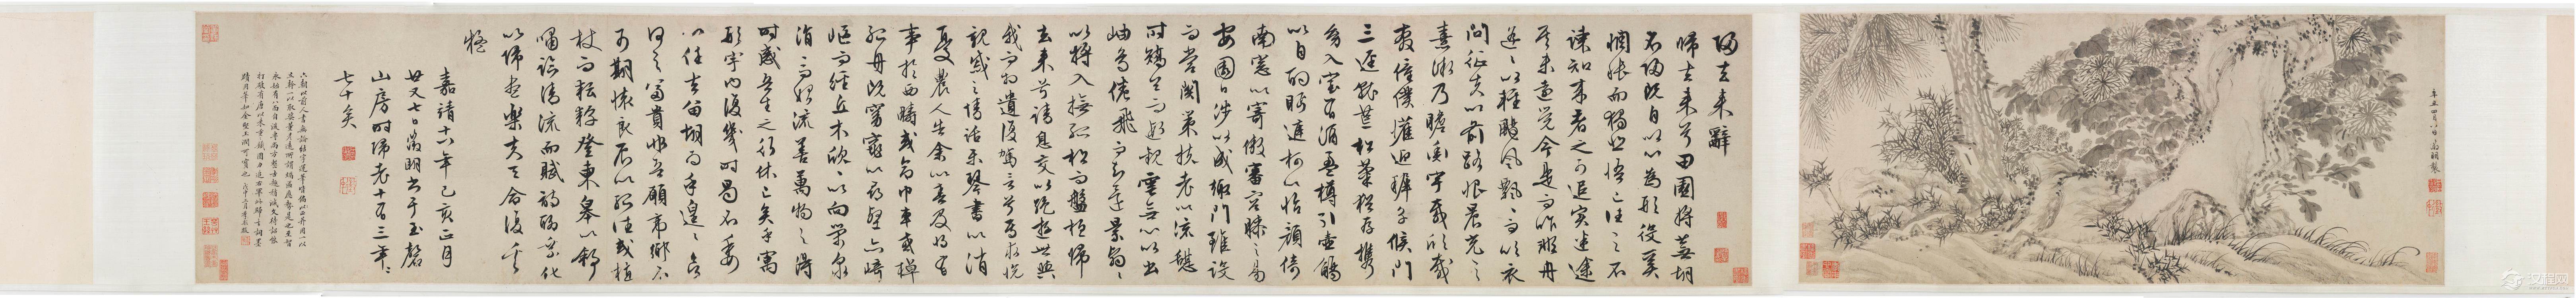 歸去來辭
歸去來兮田園將蕪胡
不歸既自以心為形役奚
惆悵而獨悲悟已往之不
諫知來者之可追實迷途
其未遠覺今是而昨非舟
遙〻以輕颺風飄〻而吹衣
問征夫以前路恨晨光之
熹微乃瞻衡宇載欣載
奔僮僕懽迎稚子候門
三逕就荒松菊猶存攜
幼入室有酒盈樽引壺觴
以自酌眄庭柯以怡顏倚
南窗以寄傲審容膝之易
安園日涉以成趣門雖設
而常關策扶老以流憩
時矯首而遐觀雲無心以出
岫鳥倦飛而知還景翳〻
以將入撫孤松而盤桓歸
去來兮請息交以絕遊世與
我而相遺復駕言兮焉求悅
親戚之情話樂琴書以消
憂農人告余以春及將有
事於西疇或命巾車或棹
孤舟既窈窕以尋壑亦崎
嶇而經丘木欣〻以向榮泉
涓〻而始流善萬物之得
時感吾生之行休已矣乎寓
形宇內復幾時曷不委
心任去留胡為乎遑〻欲
何之富貴非吾願帝鄉不
可期懷良辰以孤往或植
杖而耘耔登東皋以舒
嘯臨清流而賦詩聊乘化
以歸盡樂夫天命復奚
疑
嘉靖十六年己亥正月
廿又七日徵明書于玉磬
山房時歸老十有三年
七十矣
六朝以前人書無論結字運筆皆